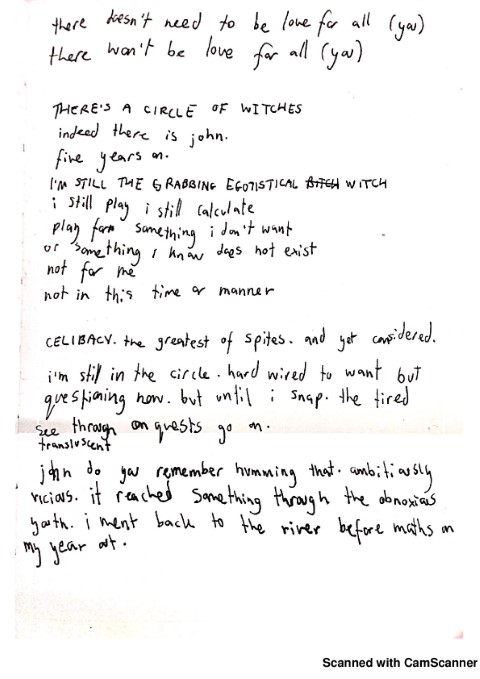 there doesn't need to be love for all (you)
there won't be love for all (you)
THERE'S A CIRCLE OF WITCHES
indeed there is john.
five years on.
I'M STILL THE GRABBING EGOTISTICAL BITCH WITCH
i still play i still calculate
play for something i don't want
or something I know does not exist
not for me
not in this time or manner
CELIBACY. the greatest of spites. and yet considered.
i'm still in the circle. hard wired to want but
questioning now. but until i snap. the tired
see through on quests go on.
transluscent
john do you remember humming that. ambitiously
vicious. it reached something through the obnoxious
youth. i went back to the river before maths on
my year out.
Scanned with CamScanner